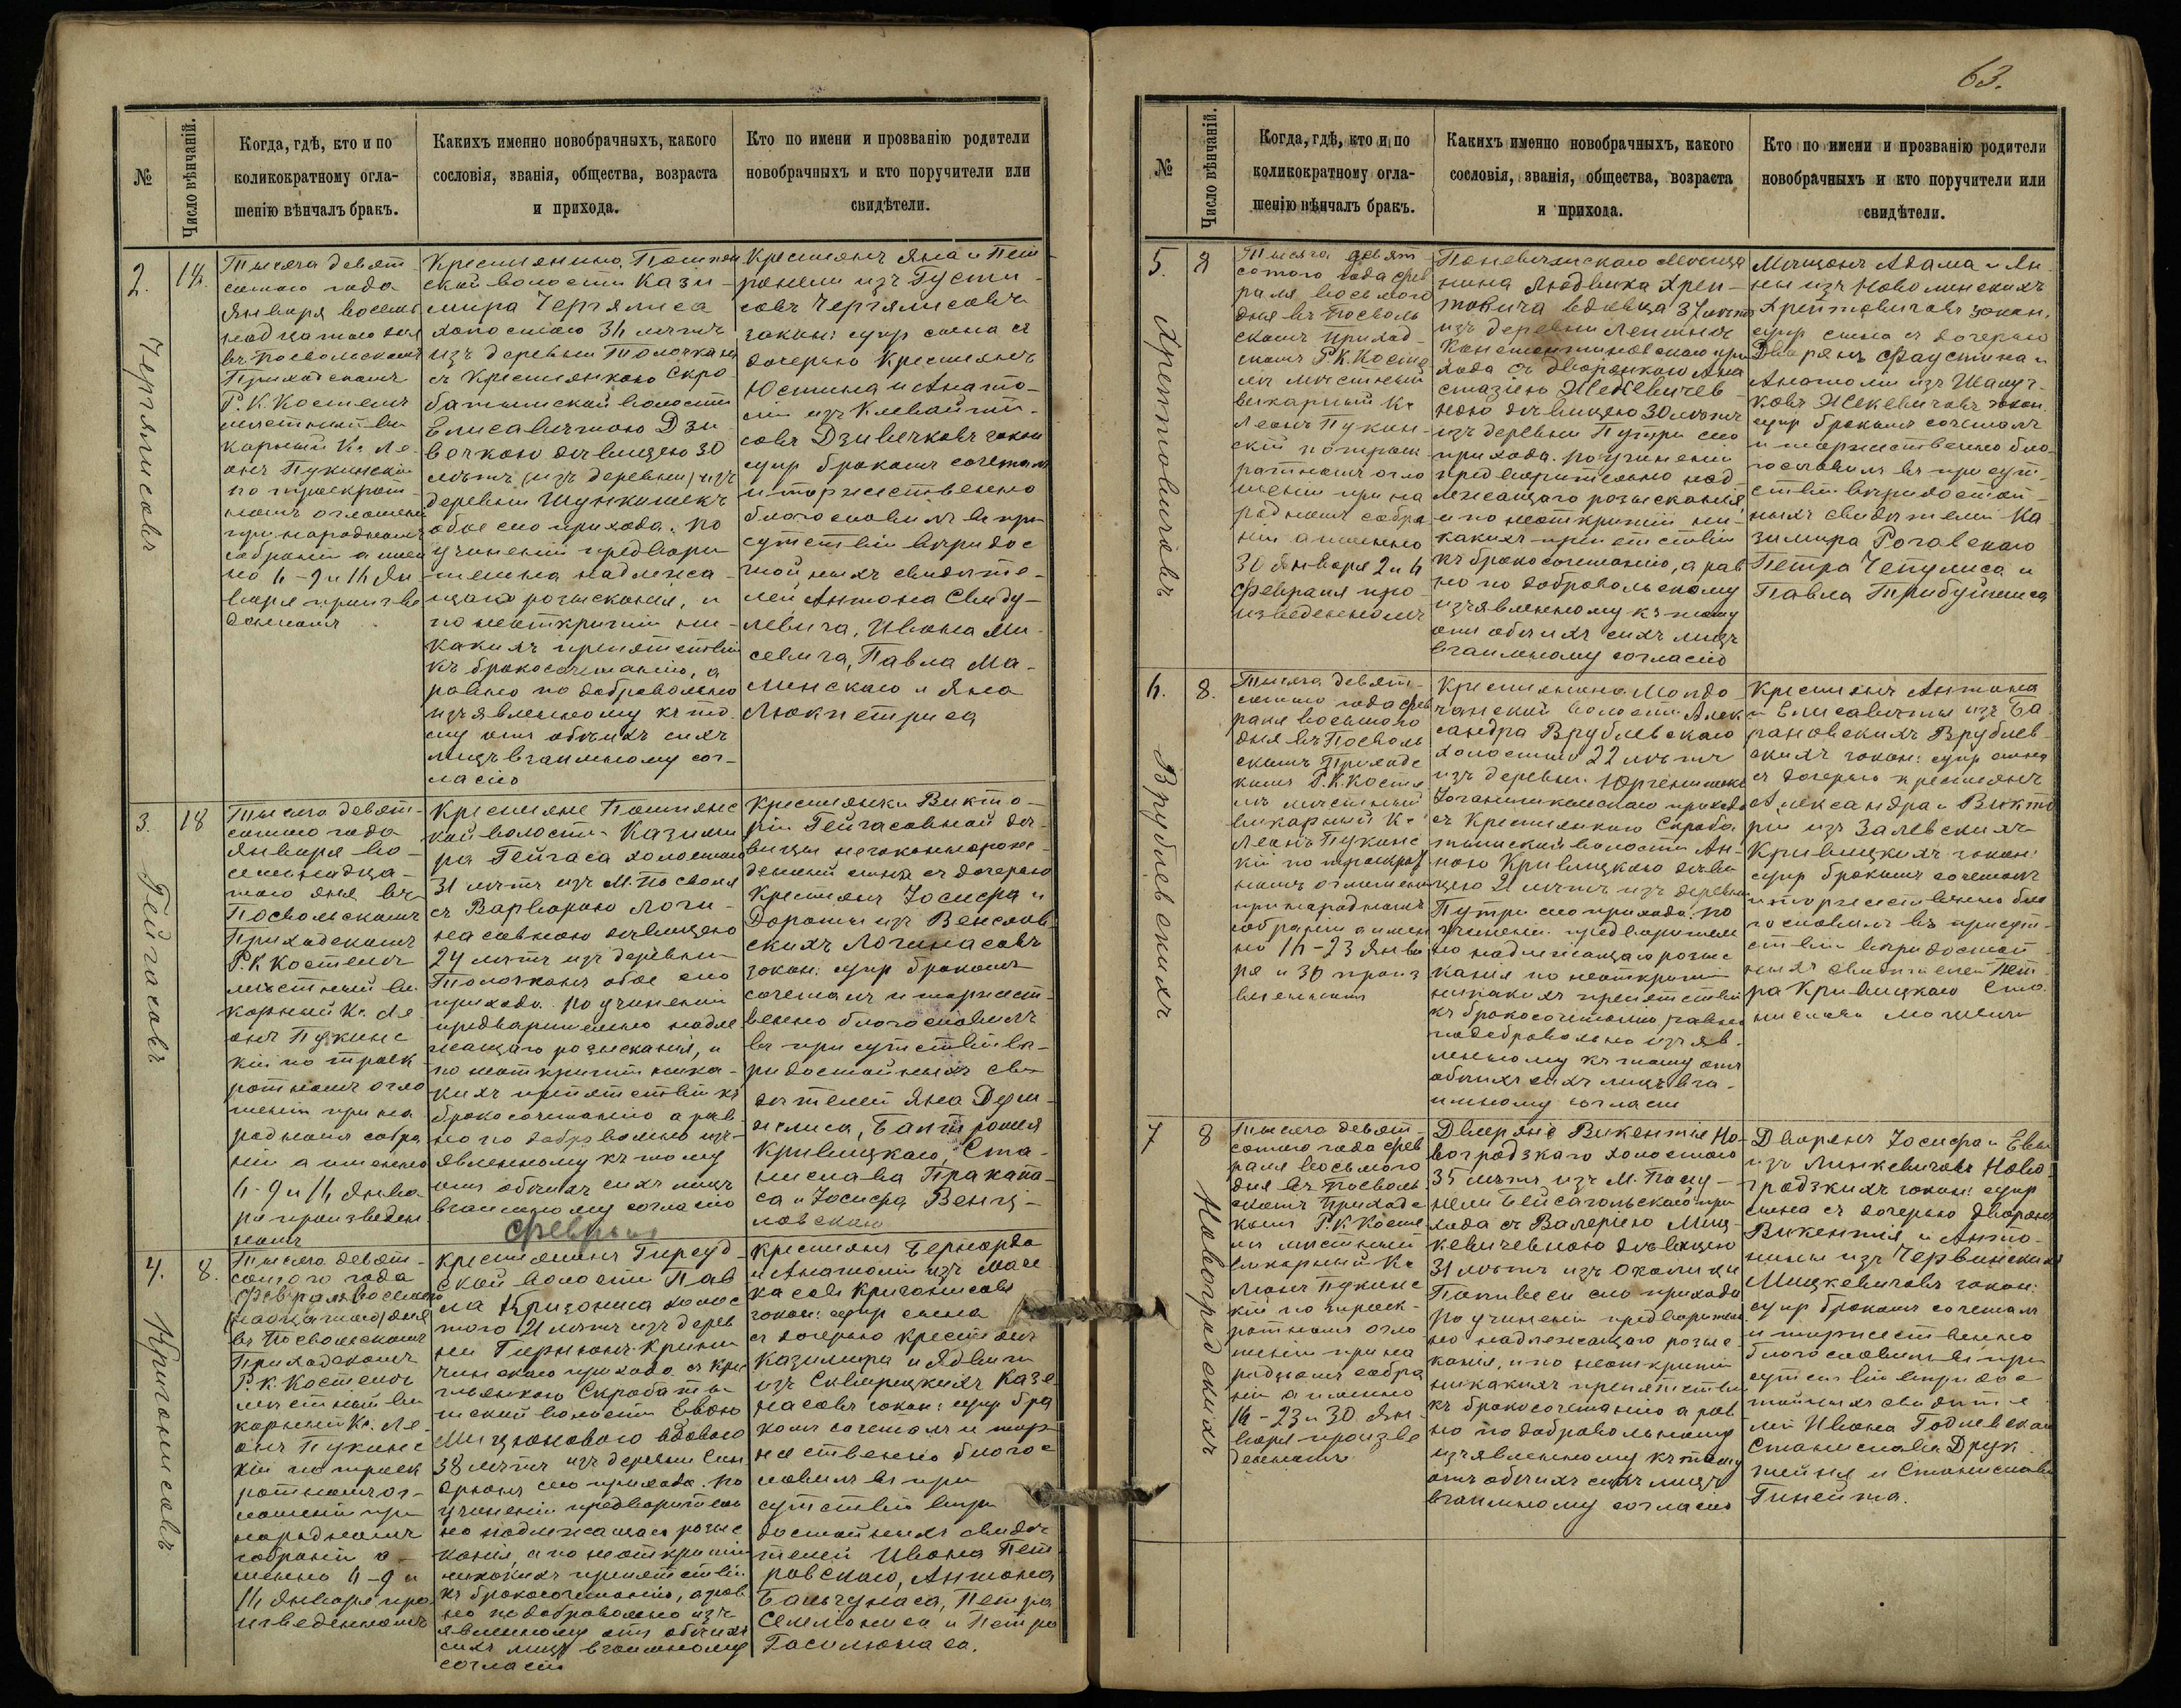 63.
№
Число вѣнчаній.
Когда, гдѣ, кто и по
коликократному огла-
шенію вѣнчалъ бракъ.
Какихъ именно новобрачныхъ, какого
сословія, званія, общества, возраста
и прихода.
Кто по имени и прозванію родители
новобрачныхъ и кто поручители или
свидѣтели.
2.
Чергялисовъ
18.
Тысяча девят-
сотаго года
Января восем
надцатаго дня
въ Посвольскомъ
Приходскомъ
Р. К. Костелѣ
мѣстный ви
карный Кс. Ле
онъ Пукинскій
по троекрат-
номъ оглашеніи
при народномъ
собраніи а имен
но 6-9 и 16 Ян
варя произве
денномъ
Крестьянина
ской волости Кази-
мира Чергялиса
холостаго 34 лѣтъ
изъ деревни Толочканъ
съ Крестьянкою Скро
батышской волости
Елисаветою Дзи
вечкою дѣвицею 30
лѣтъ (изъ деревни) изъ
деревни Шункишекъ
обое сего прихода. По
учиненіи предвари
тельна надлежа-
щаго розысканія, и
по неоткрытіи ни-
какихъ препятствій
къ бракосочетанію, а
равно по добровольно
изъявленному къ то
му отъ обѣихъ сихъ
лицъ взаимному сог-
ласію
Крестьянъ Яна и Пет-
ронели изъ Густи-
совъ Чергялисовъ
закон: супр сына съ
дочерью Крестьянъ
Юстина и Анато-
ліи изъ
совъ Дзивечковъ закон
супр бракомъ сочеталъ
и торжественно
благословилъ въ при
сутствіи вѣридос
тойныхъ свидѣте-
лей Антона Свиду-
левича, Ивана Ми-
севича, Павла Ма-
линскаго и Яна
Люкпетриса
3.
Гейгасовъ
18
Тысяча девят-
сотаго года
Января во-
семнадца-
таго дня въ
Посвольскомъ
Приходскомъ
Р. К Костелѣ
мѣстный ви
карный Кс. Ле
онъ Пукинс
кій по троек
ратномъ огла
шеніи при на
родномъ собра
ніи а именно
6-9 и 16 Янва
ря произведен
номъ
Крестьяне Помпянс
кой волости Казими
ра Гейгаса холостаго
31 лѣтъ изъ М. Посволя
съ Варварою Логи-
насовною дѣвицею
24 лѣтъ изъ деревни
Толочканъ обое сего
прихода. По учиненіи
предварительно надле
жащаго розысканія, и
по неоткрытіи ника-
кихъ препятствій къ
бракосочетанію а рав-
но по добровольно изъ-
явленному къ тому
отъ обѣихъ сихъ лицъ
взаимному согласію
Крестьянки Викто-
ріи Гейгасовной дѣ-
вицы незаконнорож-
денный сына съ дочерью
Крестьянъ Іосифа и
Доротеи изъ Венслов-
скихъ Логинасовъ
закон: супр бракомъ
сочеталъ и торжест-
венно благословилъ
въ присутствіи вѣ-
ридостойныхъ сви
дѣтелей Яна
Кривицкаго, Ста-
нислава Пракапа-
са и Іосифа Венц-
ловскаго
Февраля
4.
Кригонисовъ
8.
Тысяча девят-
сотаго года
Февраля восьмаго
(надцатаго) дня
въ Посвольскомъ
Приходскомъ
Р. К. Костелѣ
мѣстный ви
карный Кс. Ле
онъ Пукинс
кій по троек
ратномъ ог-
лашеніи при
народномъ
собраніи а
именно 6-9 и
16 Января про
изведенномъ
крестьянинъ Гиреуд-
ской волости Пав
ла Кригониса холос
таго 21 лѣтъ изъ дерев
ни Гирюнъ Крини
чинскаго прихода съ кре
тьянкою Скробаты
шской волости Евою
Мицюновою вдовою
38 лѣтъ изъ деревни
сего прихода. По
учиненіи предваритель
но надлежащаго розыс
канія, а по неоткрытіи
никакихъ препятствій
къ бракосочетанію, а рав
но по добровольно изъ-
явленному отъ обѣихъ
сихъ лицъ взаимному
согласію
крестьянъ Бернарда
и Анатоліи изъ
Кригонисовъ
закон: супр сына
съ дочерью крестьянъ
Казимира и Ядвиги
изъ Сквирецкихъ Казе-
насовъ закон: супр бра
комъ сочеталъ и тор-
жественно благос
ловилъ въ при
сутствіи вѣри
достойныхъ свидѣ
телей Ивана Пет
ровскаго, Антона
Бальчунаса, Петра
Семіониса и Петра
Гасилюнаса.
№
Число вѣнчаній.
Когда, гдѣ, кто и по
коликократному огла-
шенію вѣнчалъ бракъ.
Какихъ именно новобрачныхъ, какого
сословія, званія, общества, возраста
и прихода.
Кто по имени и прозванію родители
новобрачныхъ и кто поручители или
свидѣтели.
5.
Хрептовичовъ
8
Тысяча девят
сотаго года Фев
раля восьмаго
дня въ Посволь
скомъ Приход-
скомъ Р. К Косте
лѣ мѣстный
викарный Кс
Леонъ Пукин-
скій по троек
ратномъ огла
шеніи при на
родномъ собра
ніи а именно
30 Января 2 и 6
Февраля про
изведенномъ
Поневежскаго Мѣща
нина Людвика Хреп-
товича вдовца 37 лѣтъ
изъ деревни
Константиновскаго при
хода съ дворянкою Ана
стазіею Жекевичев-
ною дѣвицею 30 лѣтъ
изъ деревни Путри сего
прихода. По учиненіи
предварительно над-
лежащаго розысканія,
и по неоткрытіи ни-
какихъ препятствій
къ бракосочетанію, а рав
но по добровольному
изъявленному къ тому
отъ обѣихъ сихъ лицъ
взаимному согласію
Мѣщанъ Адама и Ан
ны изъ Новоминскихъ
Хрептовичовъ закон.
супр сына съ дочерью
Дворянъ Фаустина и
Анатоліи изъ
Жекевичовъ закон.
супр бракомъ сочеталъ
и торжественно бла-
гословилъ въ присут-
ствіи вѣридостой-
ныхъ свидѣтелей Ка
зимира Роговскаго
Петра Чепулиса и
Павла Трибуйшиса
6.
Врублевскихъ
8.
Тысяча девят-
сотаго года Фев
раля восьмаго
дня въ Посволь
скомъ Приходс
комъ Р. К. Косте
лѣ мѣстный
викарный Кс
Леонъ Пукинс
кій по троекрат
номъ оглашеніи
при народномъ
собраніи а имен
но 16-23 Янва
ря и 30 произ
веденномъ
Крестьянина
волости Алек
сандра Врублевскаго
холостаго 22 лѣтъ
изъ деревни
прихода
съ Крестьянкою Скроба
тышской волости Ан-
ною Кривицкою дѣви
цею 21 лѣтъ изъ деревни
Путри сего прихода. По
учиненіи предварительн
но надлежащаго розыс
канія по неоткрытіи
никакихъ препятствій
къ бракосочетанію равно
подобровольно изъяв-
ленному къ тому отъ
обѣихъ сихъ лицъ вза-
имному согласію
Крестьянъ Антона
и Елисаветы изъ Ба
рановскихъ Врублев-
скихъ закон: супр сына
съ дочерью крестьянъ
Александра и Викто
ріи изъ Залевскихъ
Кривицкихъ закон:
супр бракомъ сочеталъ
и торжественно бла
гословилъ въ присут-
ствіи вѣридостой
ныхъ свидѣтелей Пет
ра Кривицкаго Ста
нислава
7
Новоградскихъ
8
Тысяча девят-
сотаго года Фев
раля восьмаго
дня въ Посволь
скомъ Приходс
комъ Р. К Косте
лѣ мѣстный
викарный Кс
Леонъ Пукинс
кій по троек-
ратномъ огла
шеніи при на
родномъ собра
ніи а именно
16-23 и 30. Ян-
варя произве
денномъ
Дворяне Викентія Но-
воградзкаго холостаго
35 лѣтъ изъ М.
Бейсагольскаго при
хода съ Валеріею Миц-
кевичевною дѣвицею
31 лѣтъ изъ Околицы
Папивеси сего прихода
По учиненіи предварител
но надлежащаго розыс-
канія, и по неоткрытіи
никакихъ препятствій
къ бракосочетанію а рав
но по добровольному
изъявленному къ тому
отъ обѣихъ сихъ лицъ
взаимному согласію
Дворянъ Іосифа и Евы
изъ Линкевичовъ Ново-
градзкихъ закон: супр
сына съ дочерью дворянъ
Викентія, и Анто-
нины изъ Червинскихъ
Мицкевичовъ закон:
супр бракомъ сочеталъ
и торжественно
благословилъ въ при
сутствіи вѣридос
тойныхъ свидѣте
лей Ивана Годлевскаго
Станислава Друк
тейня и Станислава
Гинейта.